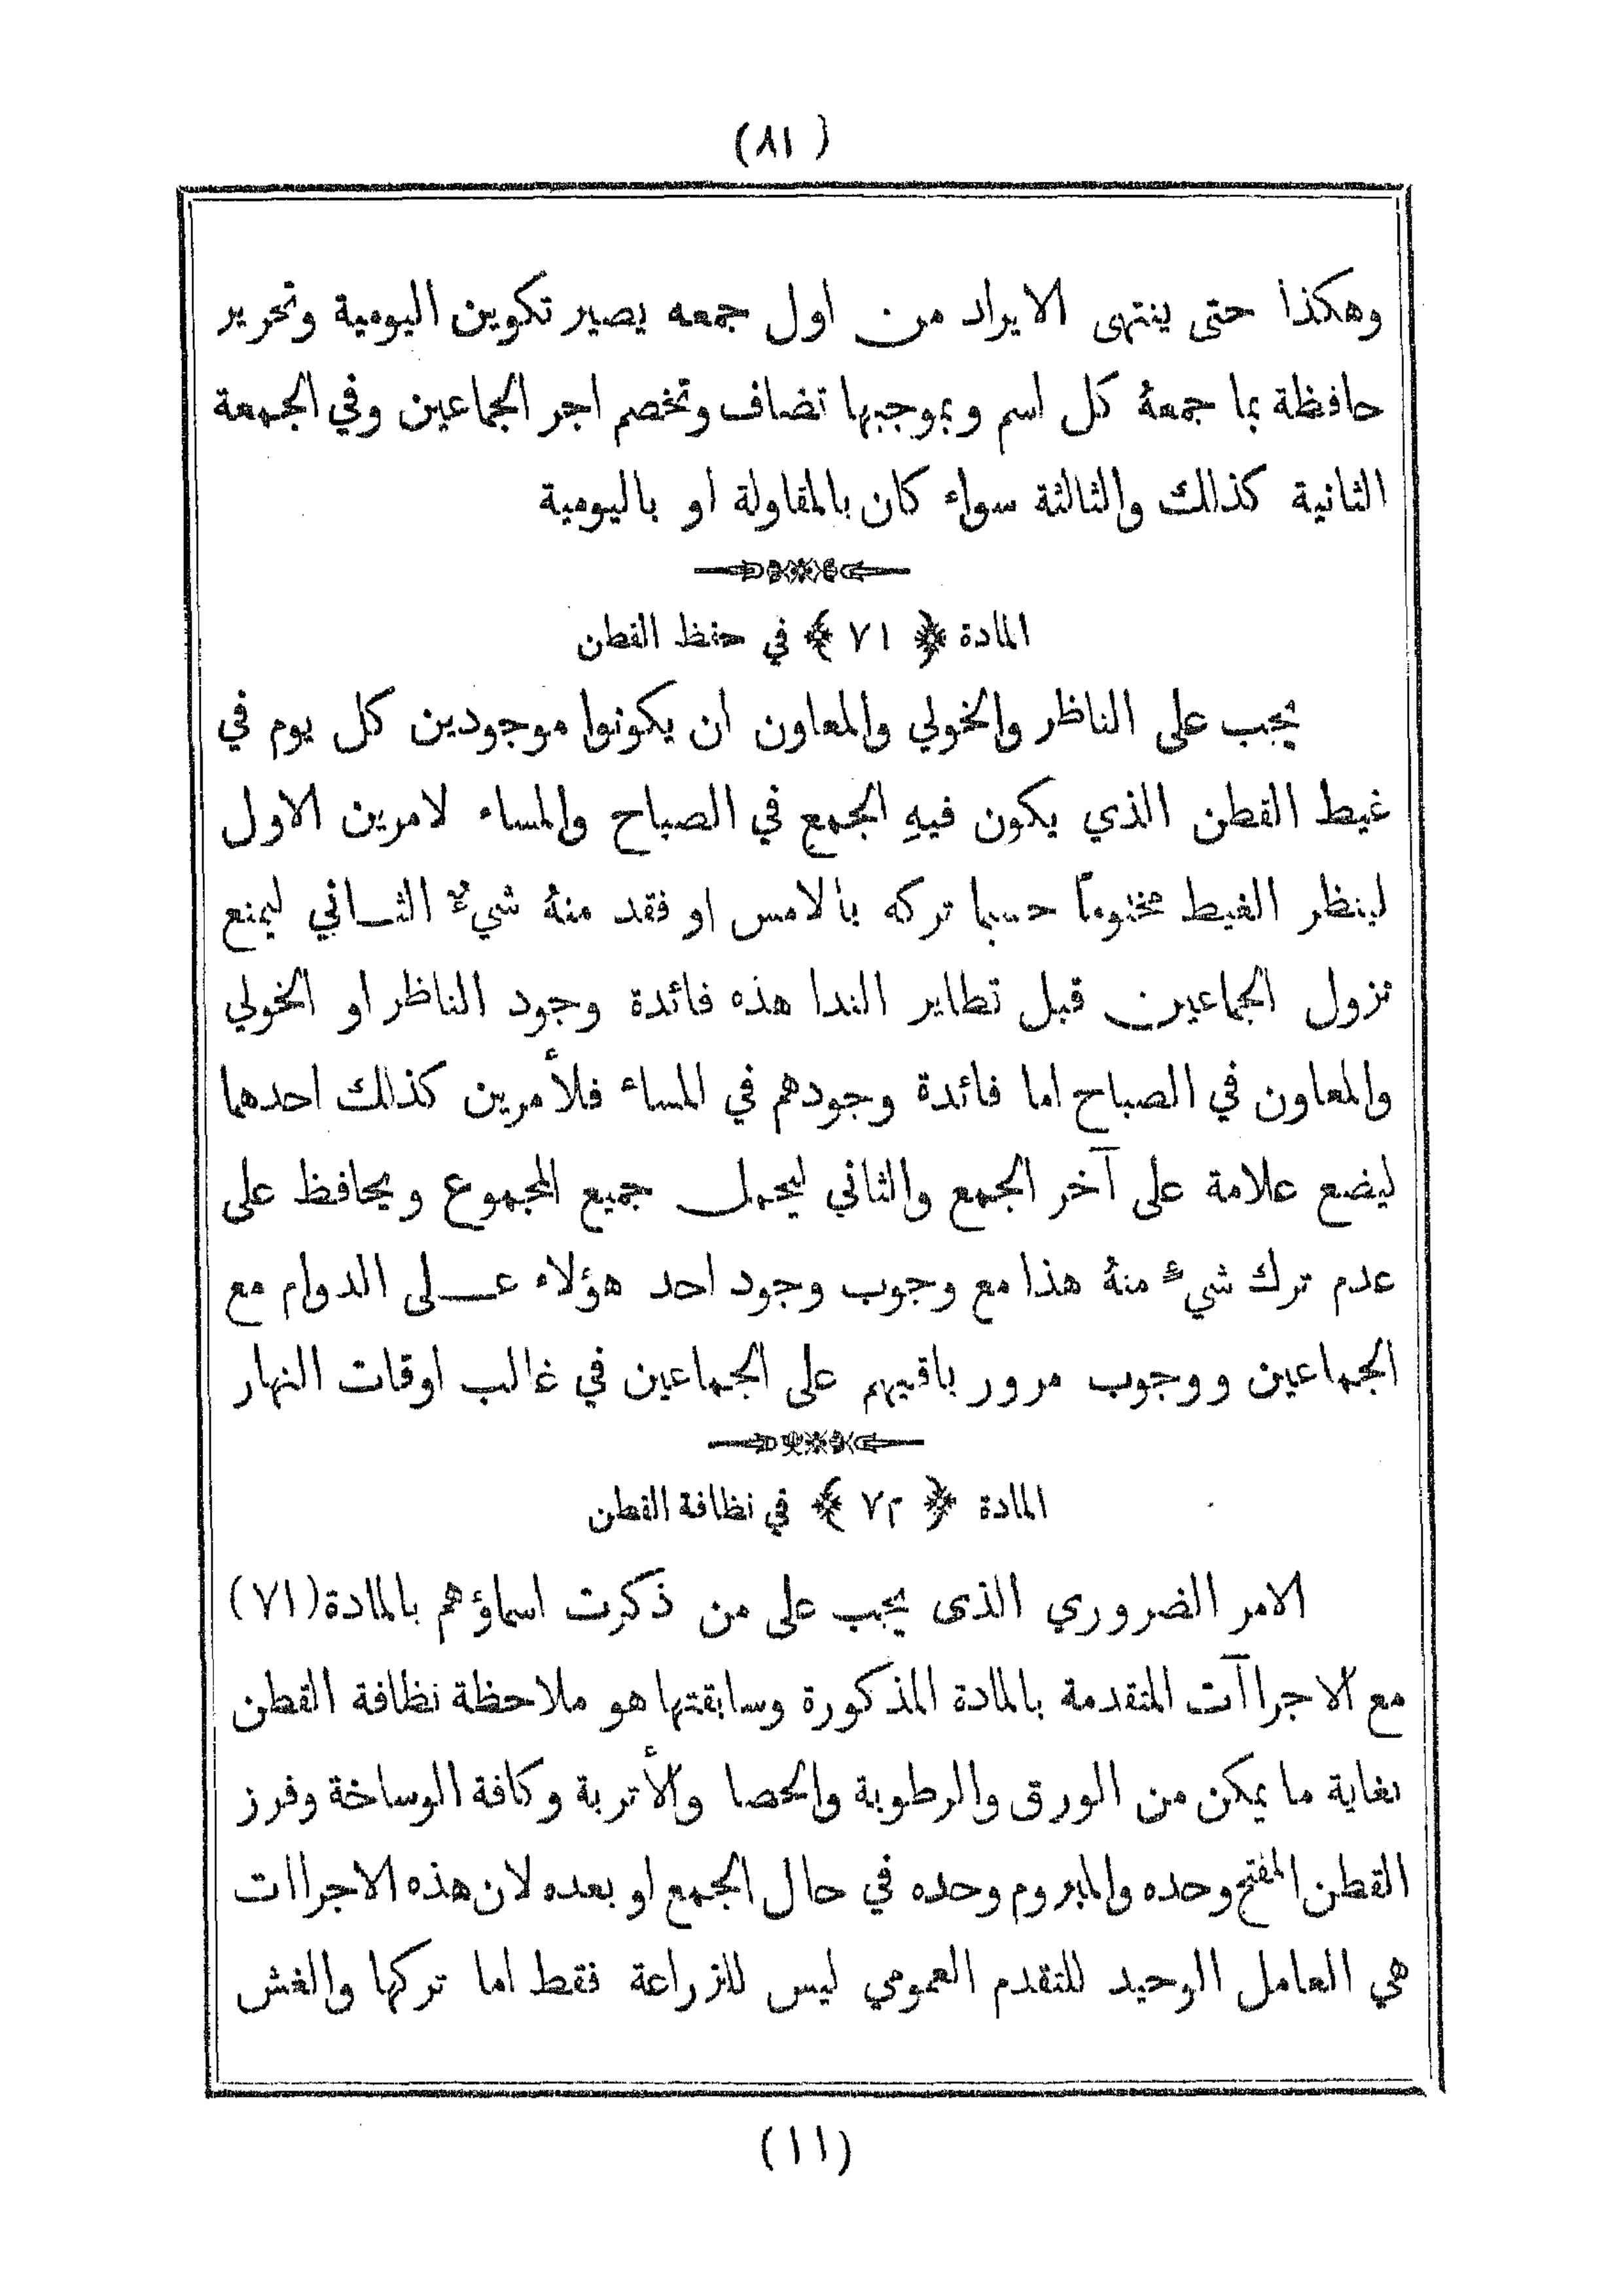 (٨١)
وهكذا حتى ينتهى الايراد من اول جمعه يصير تكوين اليومية وتحرير
حافظة بما جمعهُ كل اسم وبموجبها تضاف وتخصم اجر الجماعين وفي الجمعة
الثانية كذلك والثالثة سواء كان بالمقاولة او باليومية
المادة ﴿ ٧١ ﴾ في حفظ القطن
يجب على الناظر والخولي والمعاون ان يكونوا موجودين كل يوم في
غيط القطن الذي يكون فيهِ الجمع في الصباح والمساء لامرين الاول
لينظر الغيط مختوماً حسبما تركه بالامس او فقد منهُ شيءٌ الثـاني ليمنع
نزول الجماعين قبل تطاير الندا هذه فائدة وجود الناظر او الخولي
والمعاون في الصباح اما فائدة وجودهم في المساء فلأمرين كذلك احدهما
ليضع علامة على آخر الجمع والثاني ليحمل جميع المجموع ويحافظ على
عدم ترك شيءٍ منهُ هذا مع وجوب وجود احد هؤلاء عـلى الدوام مع
الجماعين ووجوب مرور باقيهم على الجماعين في غالب اوقات النهار
المادة ﴿ ٧٢ ﴾ في نظافة القطن
الامر الضروري الذى يجب على من ذكرت اسماؤهم بالمادة (٧١)
مع الاجراآت المتقدمة بالمادة المذكورة وسابقتها هو ملاحظة نظافة القطن
بغاية ما يمكن من الورق والرطوبة والحصا والأتربة وكافة الوساخة وفرز
القطن المفتح وحده والمبروم وحده في حال الجمع او بعده لان هذه الاجراات
هي العامل الوحيد للتقدم العمومي ليس للزراعة فقط اما تركها والغش
(١١)